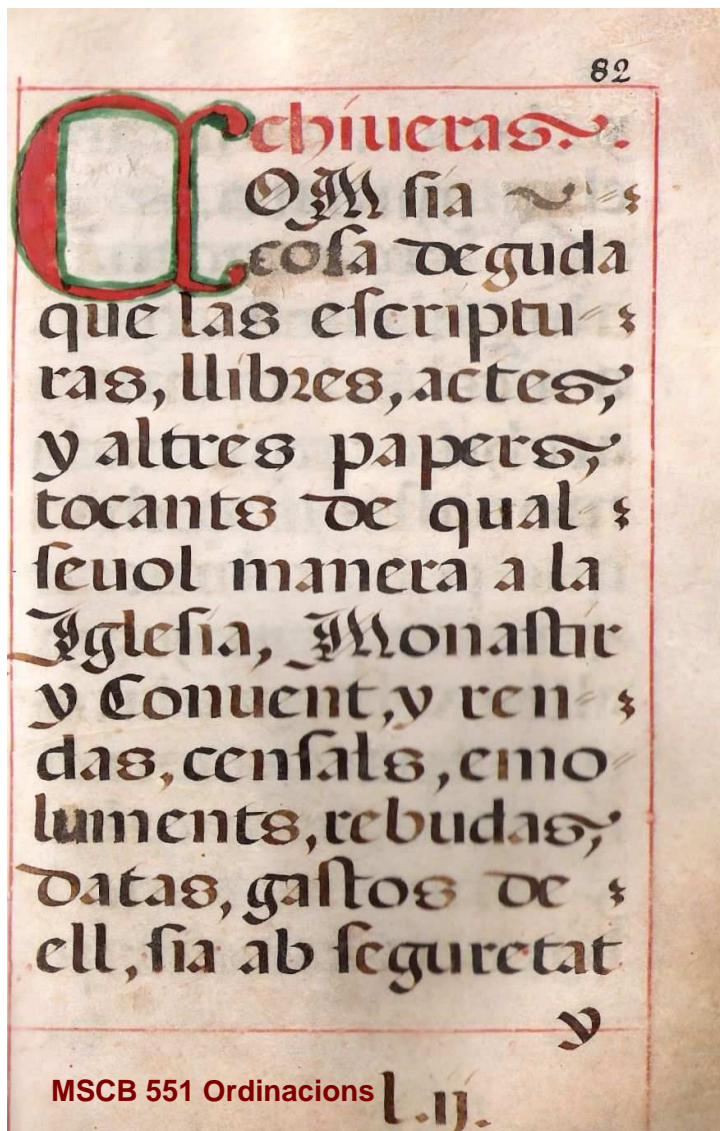 82
Achiueras.
OM sia
cosa deguda
que las escriptu-
ras, llibres, actes,
y altres papers,
tocants de qual-
seuol manera a la
Iglesia, Monastir
y Conuent, y ren-
das, censals, emo-
luments, rebudas,
datas, gastos de
ell, sia ab seguretat
y
MSCB 551 Ordinacions
l.ij.